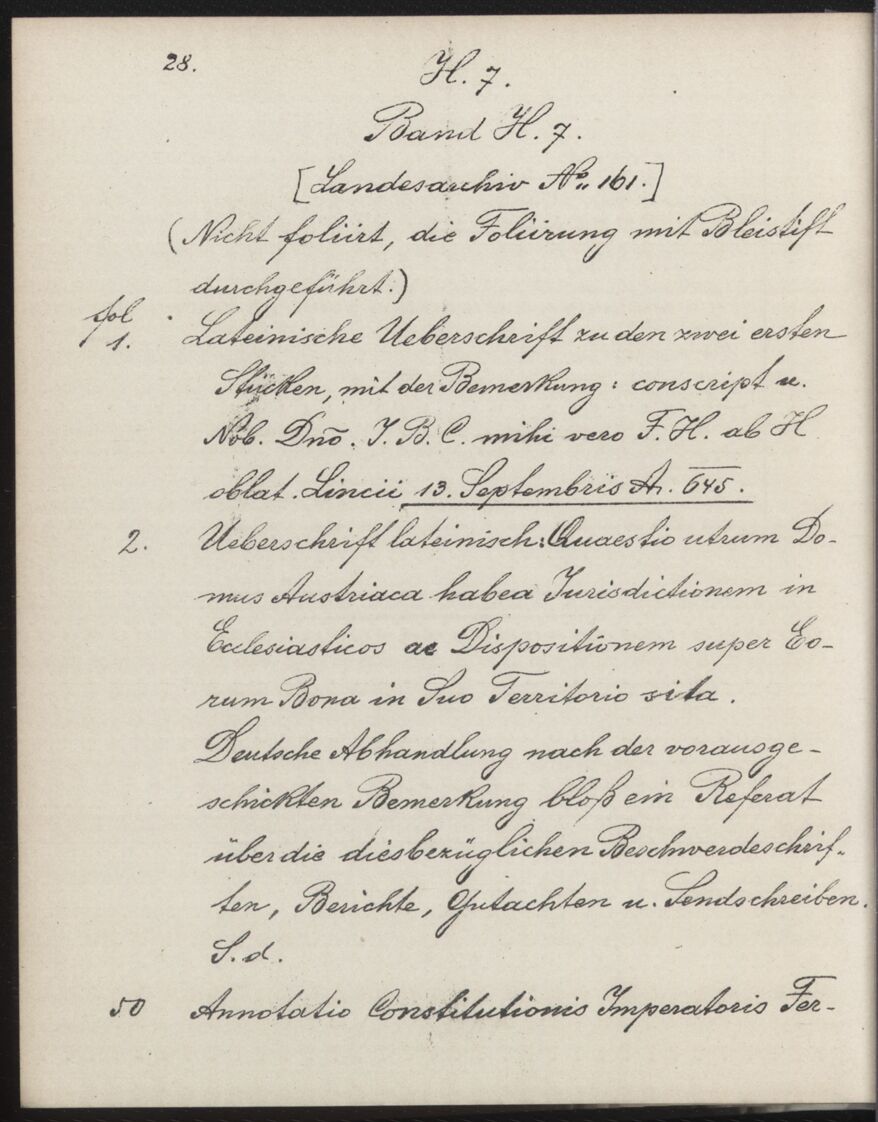 28.
H. 7.
Band H. 7.
[Landesarchiv No. 161.]
(Nicht foliirt, die Foliirung mit Bleistift
durchgeführt.)
fol
1. Lateinische Ueberschrift zu den zwei ersten
Stücken, mit der Bemerkung: conscript u.
Nob. Dno. J. B. C. mihi vero F. H. ab H
oblat. Lincii 13. Septembris A. 645.
2. Ueberschrift lateinisch: Quaestio utrum Do-
mus Austriaca habea Jurisdictionem in
Ecclesiasticos ac Dispositionem super Eo-
rum Bona in Suo Territorio sita.
Deutsche Abhandlung nach der vorausge-
schickten Bemerkung bloß ein Referat
über die diesbezüglichen Beschwerdeschrif-
ten, Berichte, Gutachten u. Sendschreiben.
S. d.
50 Annotatio Constitutionis Imperatoris Fer-